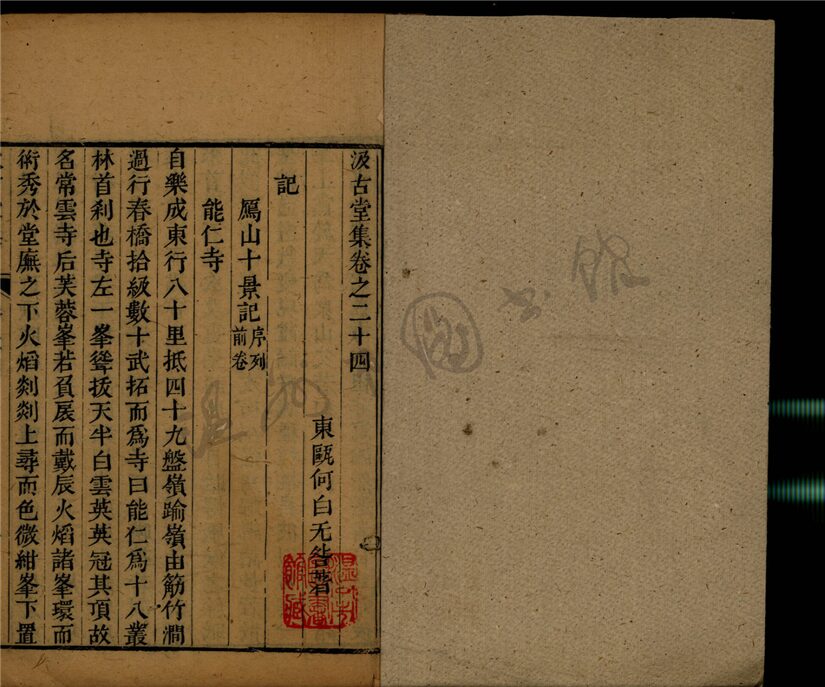 汲古堂集卷之二十四
東甌何白无咎著
記
鴈山十景記序列前卷
能仁寺
自樂成東行八十里抵四十九盤嶺踰嶺由筋竹澗
過行春橋拾級數十武拓而爲寺曰能仁爲十八叢
林首刹也寺左一峯聳拔天半白雲英英冠其頂故
名常雲寺后芙蓉峯若負扆而戴辰火熖諸峯環而
術秀於堂廡之下火熖剡剡上尋而色微紺峯下置